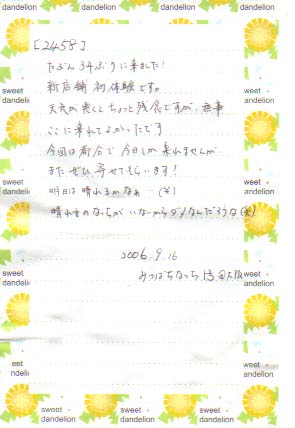 [2458]
たぶん3年ぶりに来ました!
新店舗 初体験です。
天気が悪くちょっと残念ですが、無事
ここに来れてよかったです
今回は都合で今日しか来れませんが
またぜひ寄せてもらいます!
明日は晴れるかなぁ…(笑)
晴れ男のなっちがいないからダメなんだろうな(笑)
2006.9.16
みつばちなっち
sweet dandelion
sweet dandelion
sweet dandelion
sweet dandelion
sweet dandelion
sweet dandelion
sweet dandelion
sweet dandelion
sweet dandelion
sweet dandelion
sweet dandelion